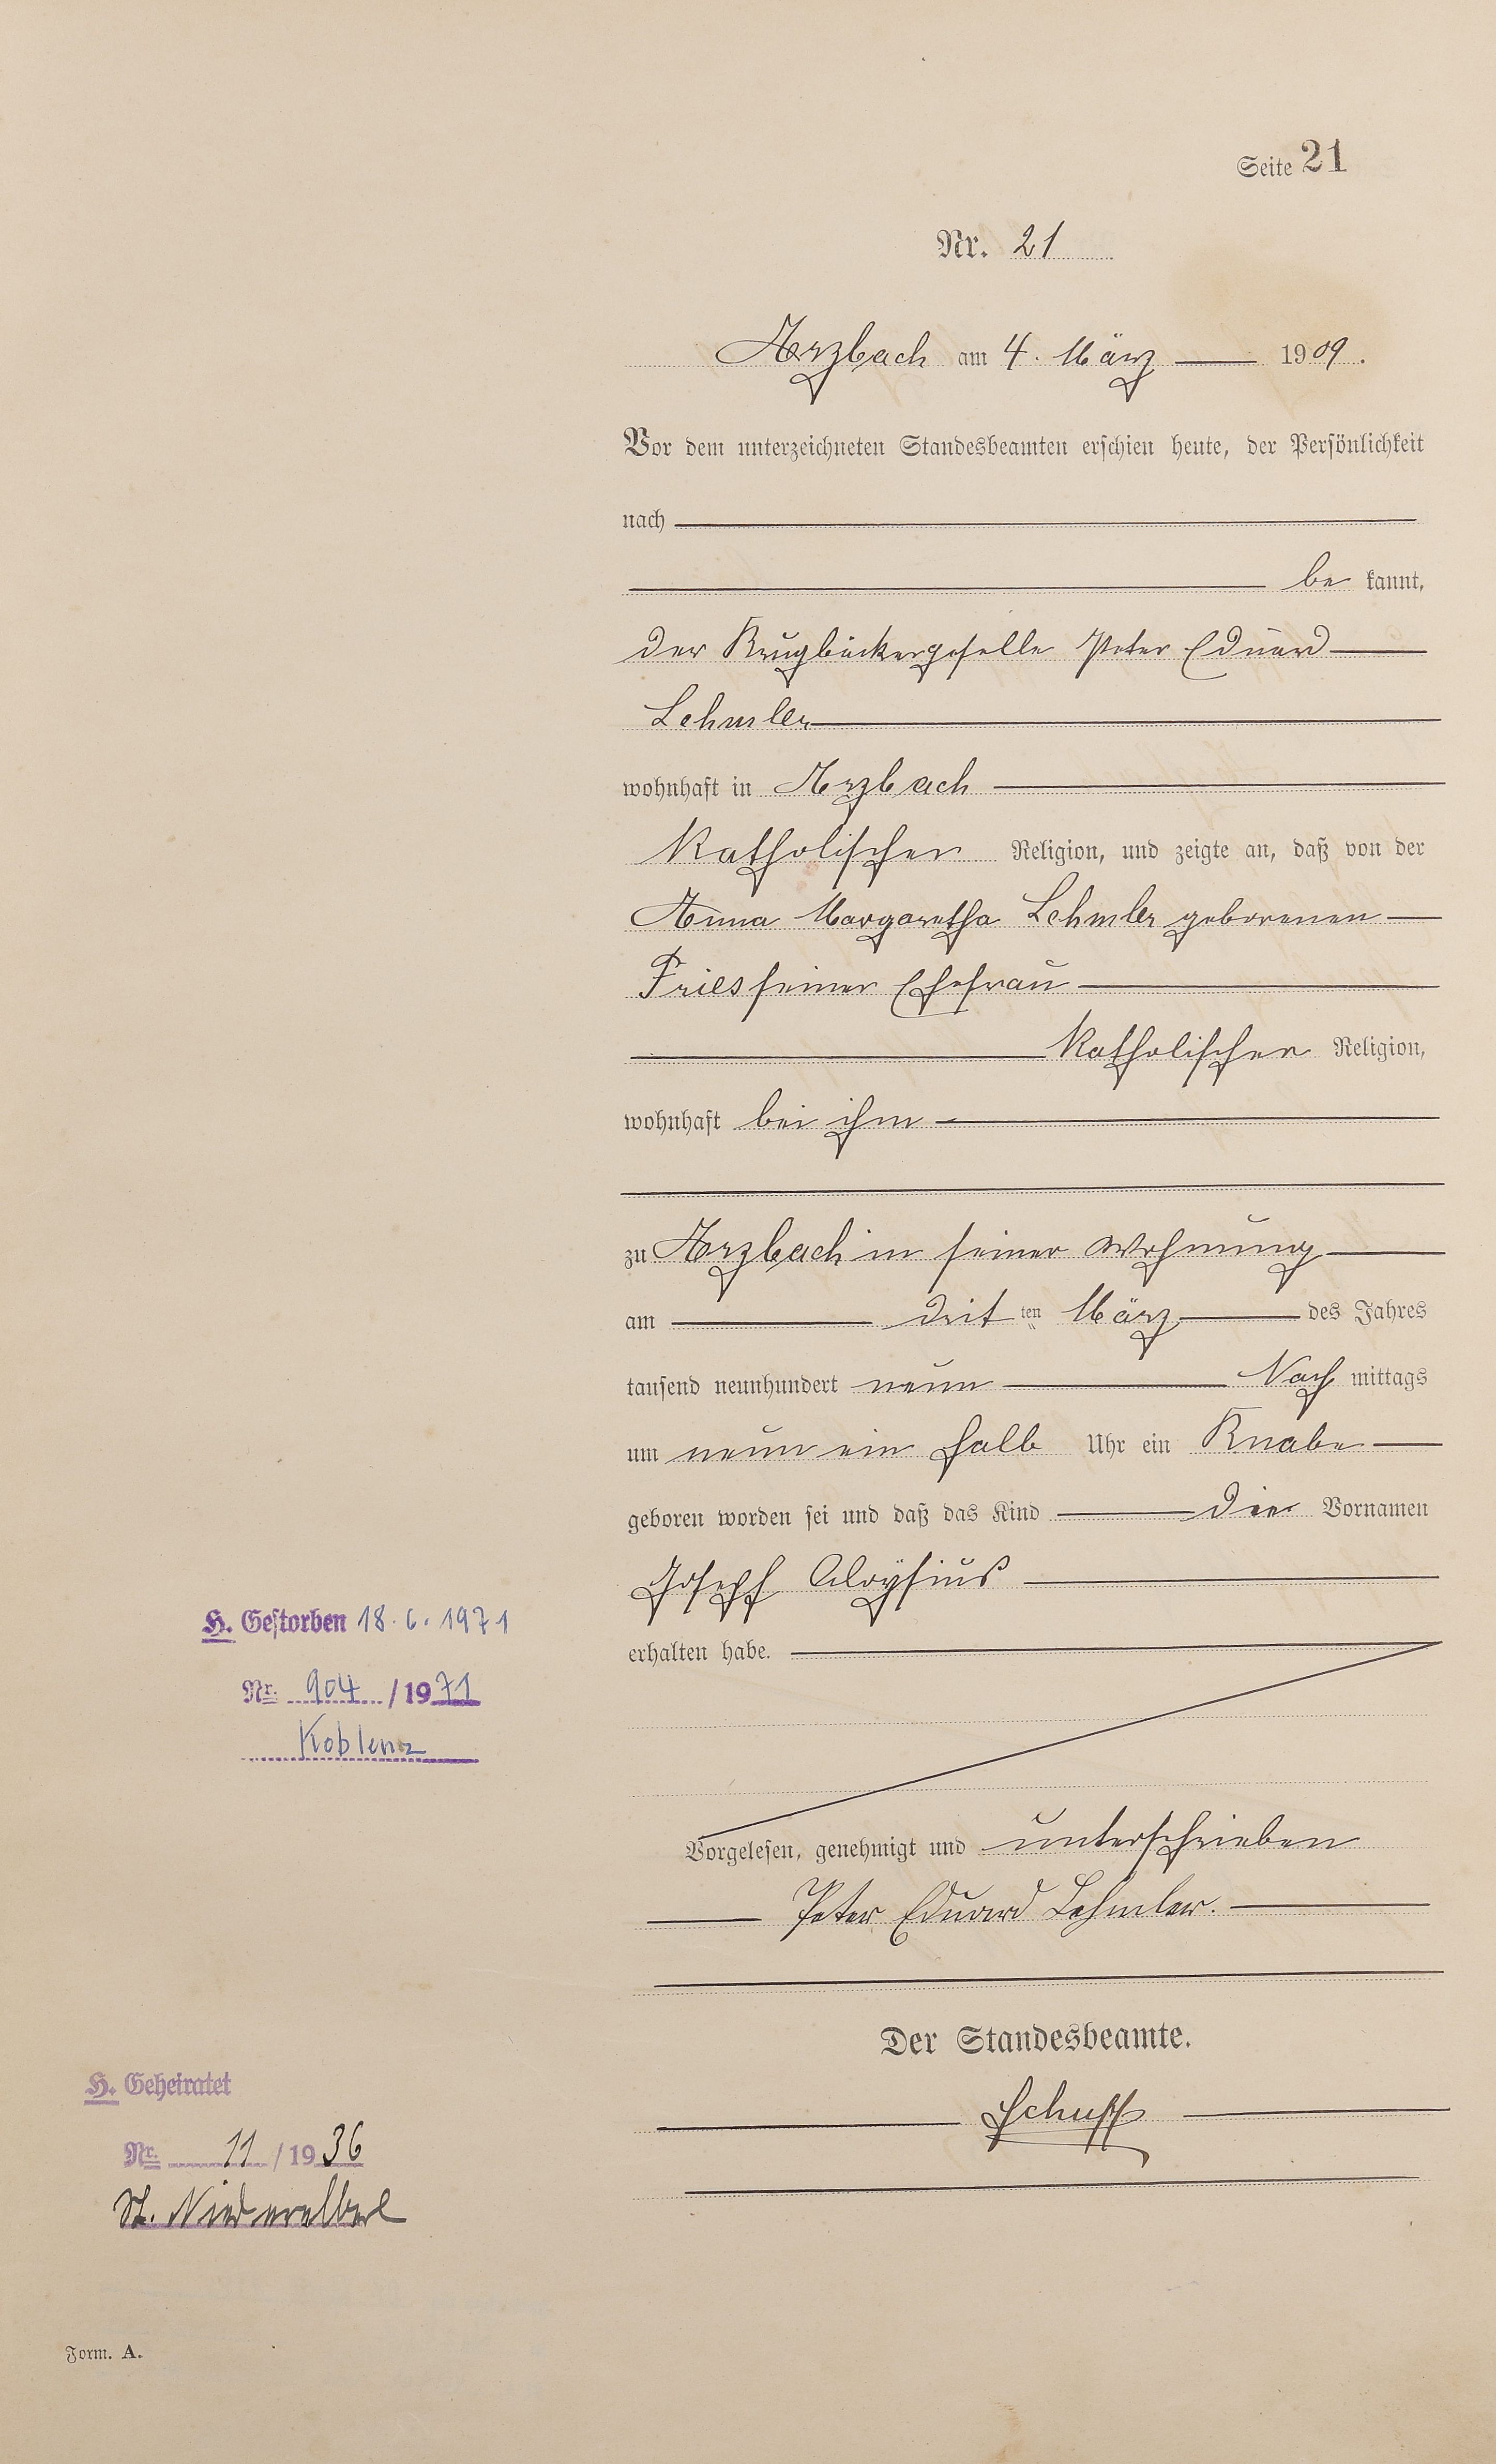 Seite 21
Nr. 21
Arzbach am 4. März 1909.
Vor dem unterzeichneten Standesbeamten erschien heute, der Persönlichkeit
nach
be kannt,
der Krugbäckergeselle Peter Eduard
Lehmler
wohnhaft in Arzbach
katholischer Religion, und zeigte an, daß von der
Anna Margaretha Lehmler geborenen
Fries seiner Ehefrau
katholischer Religion,
wohnhaft bei ihm
zu Arzbach in seiner Wohnung
am drit ten März des Jahres
tausend neunhundert neun Nach mittags
um neun ein halb Uhr ein Knabe
geboren worden sei und daß das Kind die Vornamen
Joseph Aloysius
erhalten habe.
H. Gestorben 18.6.1971
Nr. 904 / 1971
Koblenz
Vorgelesen, genehmigt und unterschrieben
Peter Eduard Lehmler.
Der Standesbeamte.
Schupp
H. Geheiratet
Nr. 11 / 1936
St. Niederelbert
Form. A.